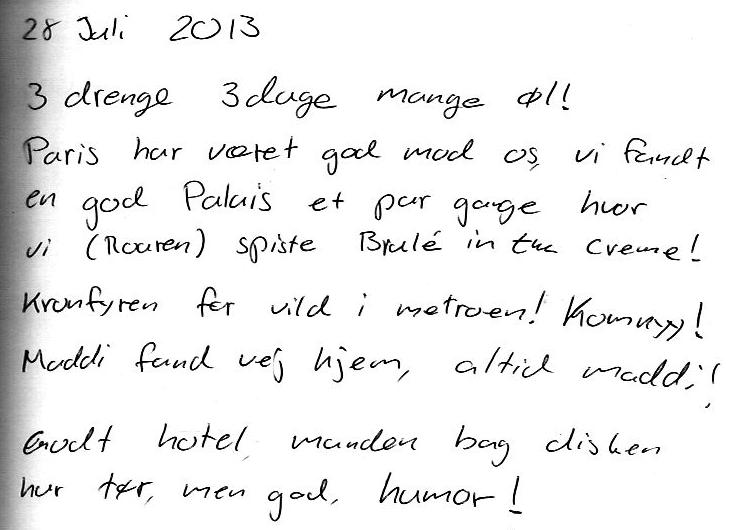 28 Juli 2013
3 drenge 3 dage mange øl!
Paris har været god mod os, vi fandt
en god Palais et par gange hvor
vi (Rouren) spiste Brulé in the creme!
Kronfyren før vild i metroen! Kommyy!
Maddi fand vej hjem, altid maddi!
Godt hotel, manden bag disken
har tør, men god, humor!